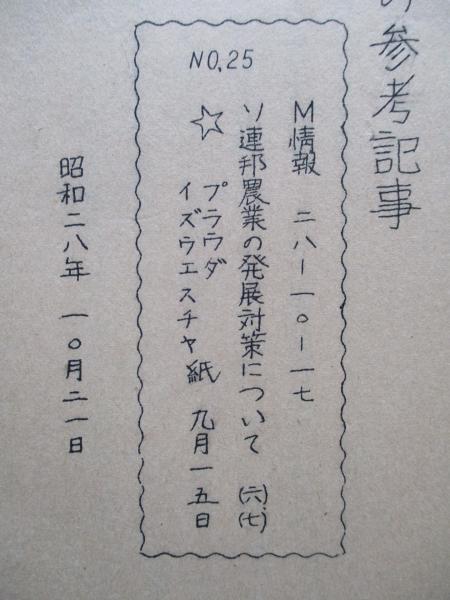 の参考記事
NO.25
M情報 二八ー一〇ー一七
ソ連邦農業の発展対策について (六)(七)
☆ プラウダ
イズウエスチヤ紙 九月一五日
昭和二八年 一〇月二一日